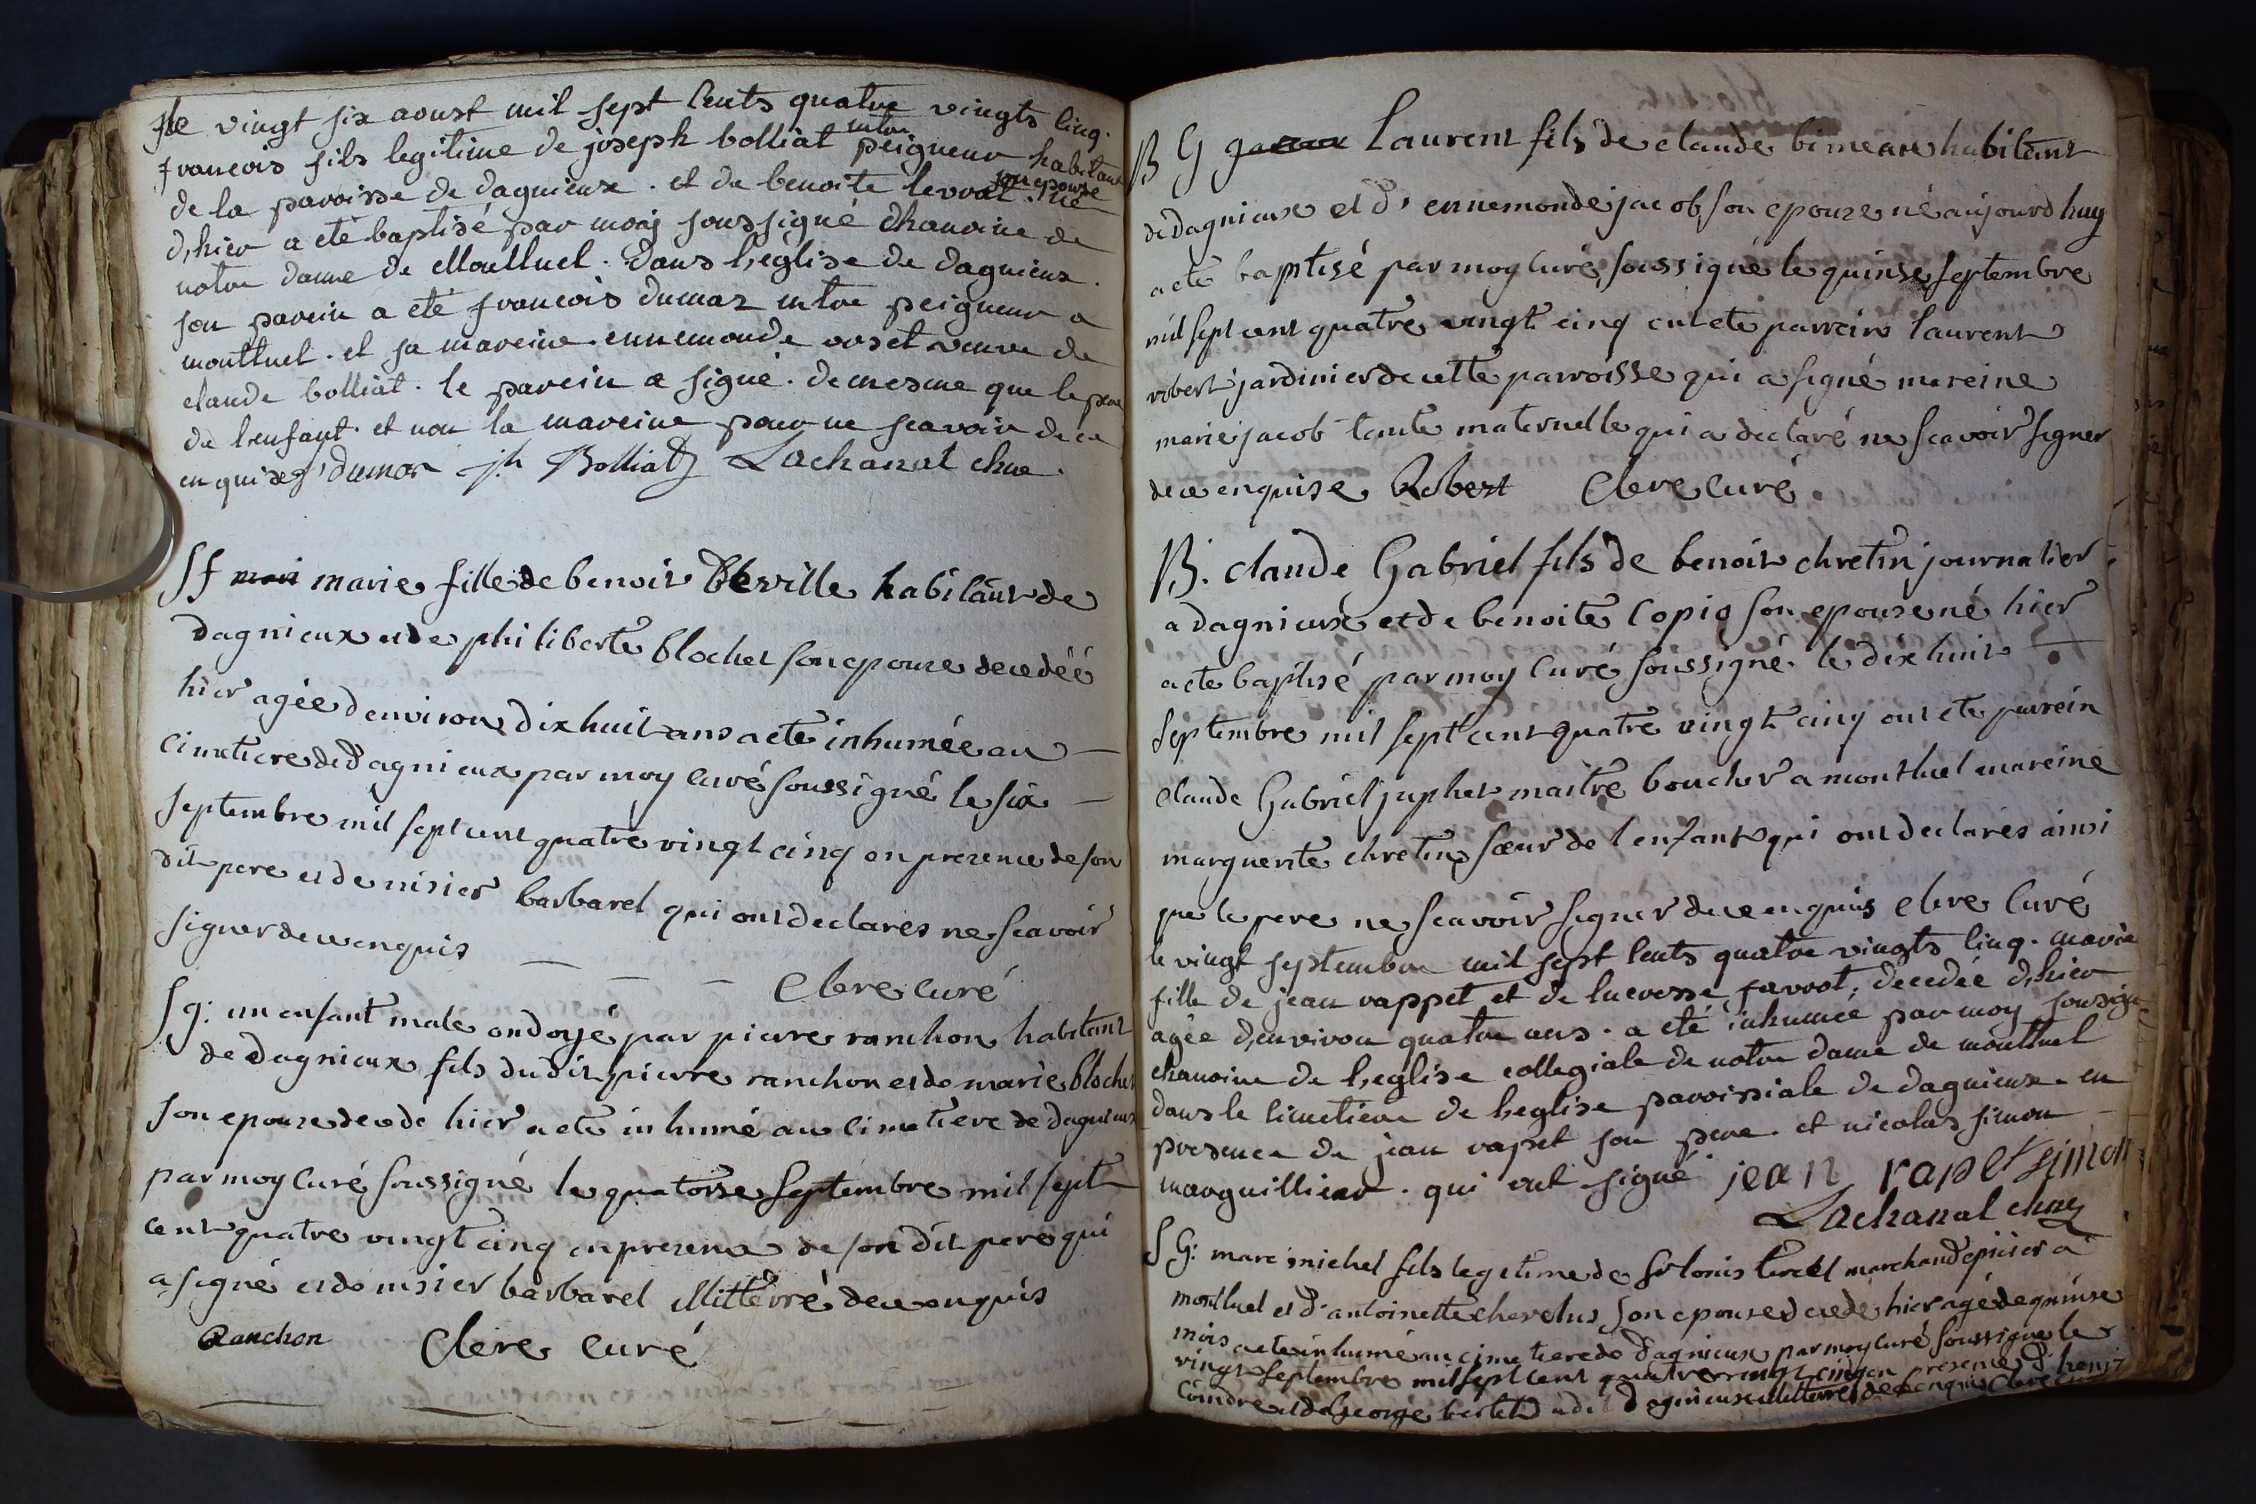 le vingt six aoust mil sept Cents quatre vingts Cinq.
francois fils legitime de joseph bolliat mtre peigneur habitant
de la paroisse de dagnieux. et de benoite levrat. son epouse né
d,hier a eté baptisé par moy soussigné chanoine de
notre dame de Montluel. dans l,eglise de dagnieux.
son parein a eté francois dumas mtre peigneur a
montluel. et sa mareine ennemonde voset veuve de
claude bolliat. le parein a signé. de mesme que le pere
de l'enfant. et non la mareine pour ne scavoir de ce
enquise dumas jh Bolliat Lachanal chne.
Sf mari marie fille de benoit Bleville habitant de
dagnieux et de philiberte blochet son epouse decedéé
hier agée d environ dix huit ans a eté inhumée au
Cimetiere de Dagnieux par moy curé soussigné le six
septembre mil sept cent quatre vingt cinq en presence de son
dit pere et de nisier barbarel qui ont declarés ne scavoir
signer de ce enquis
Clere curé
S g: un enfant male ondoyé par pierre ranchon habitant
de Dagnieux fils du dit pierre ranchon et de marie blochet
son epouse decede hier a eté inhumé au cimetiere de Dagnieux
par moy Curé soussigné le quatorse septembre mil sept
cent quatre vingt cinq en presence de son dit pere qui
a signé et de nisier barbarel illitterré de ce enquis
Ranchon Clere Curé
B G Laurent fils de claude bimeare habitant
de Dagnieux et d' ennemonde jacob son epouse né aujourd huy
a eté baptisé par moy Curé soussigné le quinse septembre
mil sept cent quatre vingt cinq ont eté parrein laurent
robert jardinier de cette parroisse qui a signé mareine
marie jacob tante maternelle qui a declaré ne scavoir signer
de ce enquise Robert Clere curé
B. claude Gabriel fils de benoit chretin journalier
a dagnieux et de benoite Copio son epouse né hier
a eté baptisé par moy Curé soussigné le dix huit
septembre mil sept cent quatre vingt cinq ont eté parrein
Claude Gabriel juphet maitre boucher a montluel mareine
marguerite chretin sœur de l enfant qui ont declarés ainsi
que le pere ne scavoir signer de ce enquis Clere Curé
le vingt septembre mil sept Cents quatre vingts Cinq. marie
fille de jean rappet et de lucresse favrot. decedée d,hier
agée d,environ quatre ans. a eté inhumée par moy sousigné
chanoine de l,eglise collegiale de notre dame de montluel
dans le Cimetiere de l,eglise paroissiale de dagnieux. en
presence de jean rapet son pere. et nicolas simon
marguillier. qui ont signé jean rapet simon
Lachanal chne
S G: marc michel fils legitime de sr louis tercel marchand epicier a
montluel et d' antoinette chevelus son epouse decedé hier agé de quinse
mois a eté inhumé au cimetiere de Dagnieux par moy curé soussigné le
vingt septembre mil sept cent quatre vingt cinq en presence d' benoit
Coindre et de George a Dagnieux illitterrés de ce enquis Clere curé